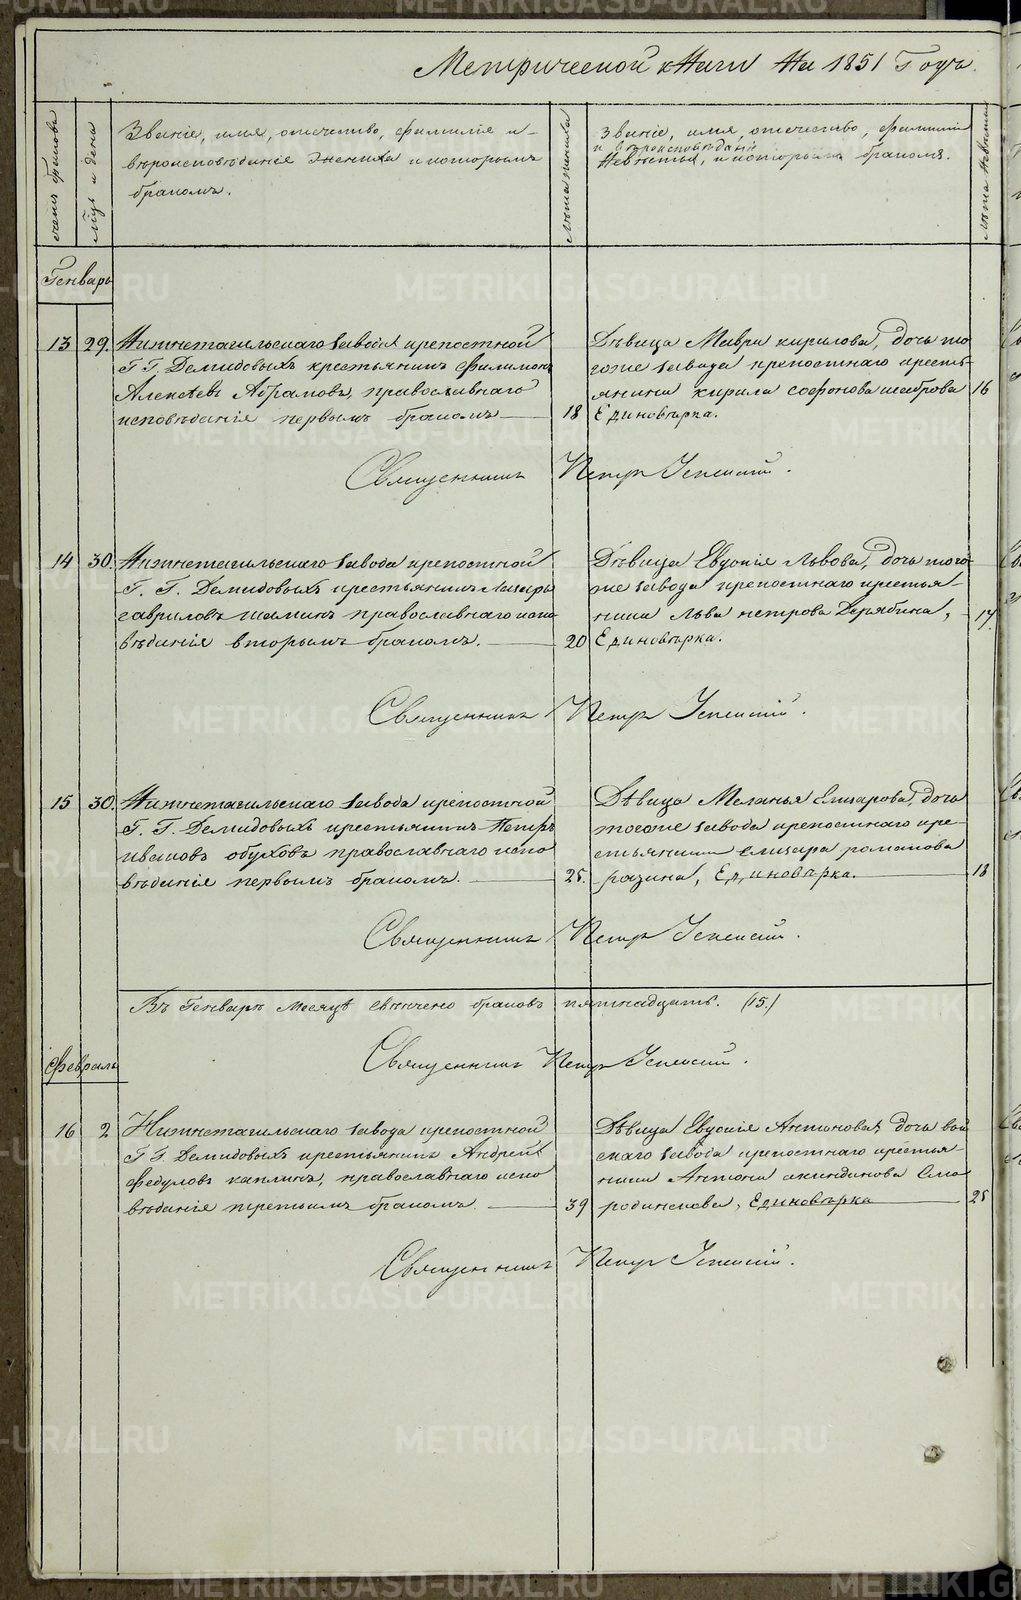 Метрической книги на 1851 Годъ.
счетъ браковъ
Мцъ и день
Званіе, имя, отечество, фамилія и
вѣроисповѣданіе жениха и которымъ
бракомъ.
Лѣта жениха
Званіе, имя, отечество, фамилія
и вѣроисповѣданіе
Невѣсты, и которымъ бракомъ.
Лѣта Невѣсты
Генварь
13 29. Нижнетагильскаго завода крепостной
Г Г. Демидовыхъ крестьянинъ Филимонъ
Алексѣевъ Абрамовъ, православнаго
исповѣданія первымъ бракомъ 18
Дѣвица Мавра кирилова, дочь то
гоже завода крепостнаго кресть-
янина кирила софонова шаброва 16
Единовѣрка.
Священникъ Петръ Успенскій.
14 30. Нижнетагильскаго завода крепостной
Г. Г. Демидовыхъ крестьянинъ Лазарь
гавриловъ шаминъ православнаго испо
вѣданія вторымъ бракомъ. 20
Дѣвица Евдокія Львова, дочь того
же завода крепостнаго крестья
нина Льва петрова Дерябина, 17.
Единовѣрка.
Священникъ Петръ Успенскій.
15 30. Нижнетагильскаго завода крепостной
Г. Г. Демидовыхъ крестьянинъ Петръ
ивановъ обуховъ православнаго испо
вѣданія первымъ бракомъ. 25.
Дѣвица Меланья Елизарова, дочь
тогоже завода крепостнаго кре-
стьянина елизара романова
разина, Единовѣрка. 18
Священникъ Петръ Успенскій.
Въ Генварѣ месяцѣ свѣнчено браковъ пятнадцать. (15.)
Священникъ Петръ Успенскій.
Февраль
16 2 Нижнетагильскаго завода крепостной
Г Г. Демидовыхъ крестьянинъ Андрей
федуловъ каплинъ, православнаго испо
вѣданія третьимъ бракомъ. 39
Дѣвица Евдокія Антонова, дочь вой
скаго завода крепостнаго крестья
нина Антона акиндинова Смо
родинскова, Единовѣрка 25
Священникъ Петръ Успенскій.
METRIKI.GASO-URAL.RU